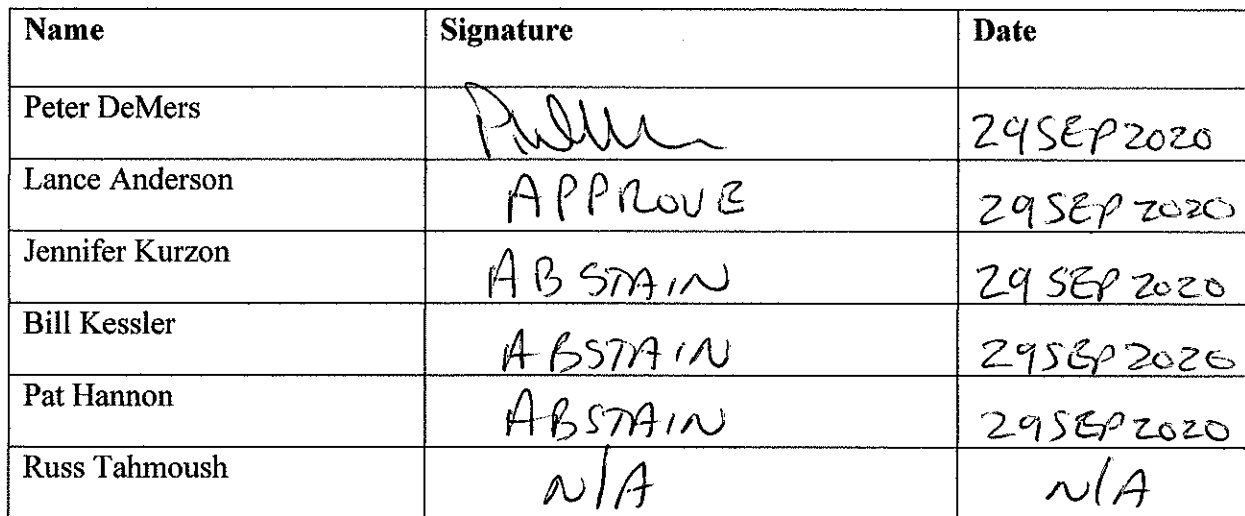 Name Signature Date
Peter DeMers 29 SEP 2020
Lance Anderson APPROVE 29 SEP 2020
Jennifer Kurzon ABSTAIN 29 SEP 2020
Bill Kessler ABSTAIN 29 SEP 2020
Pat Hannon ABSTAIN 29 SEP 2020
Russ Tahmoush N/A N/A